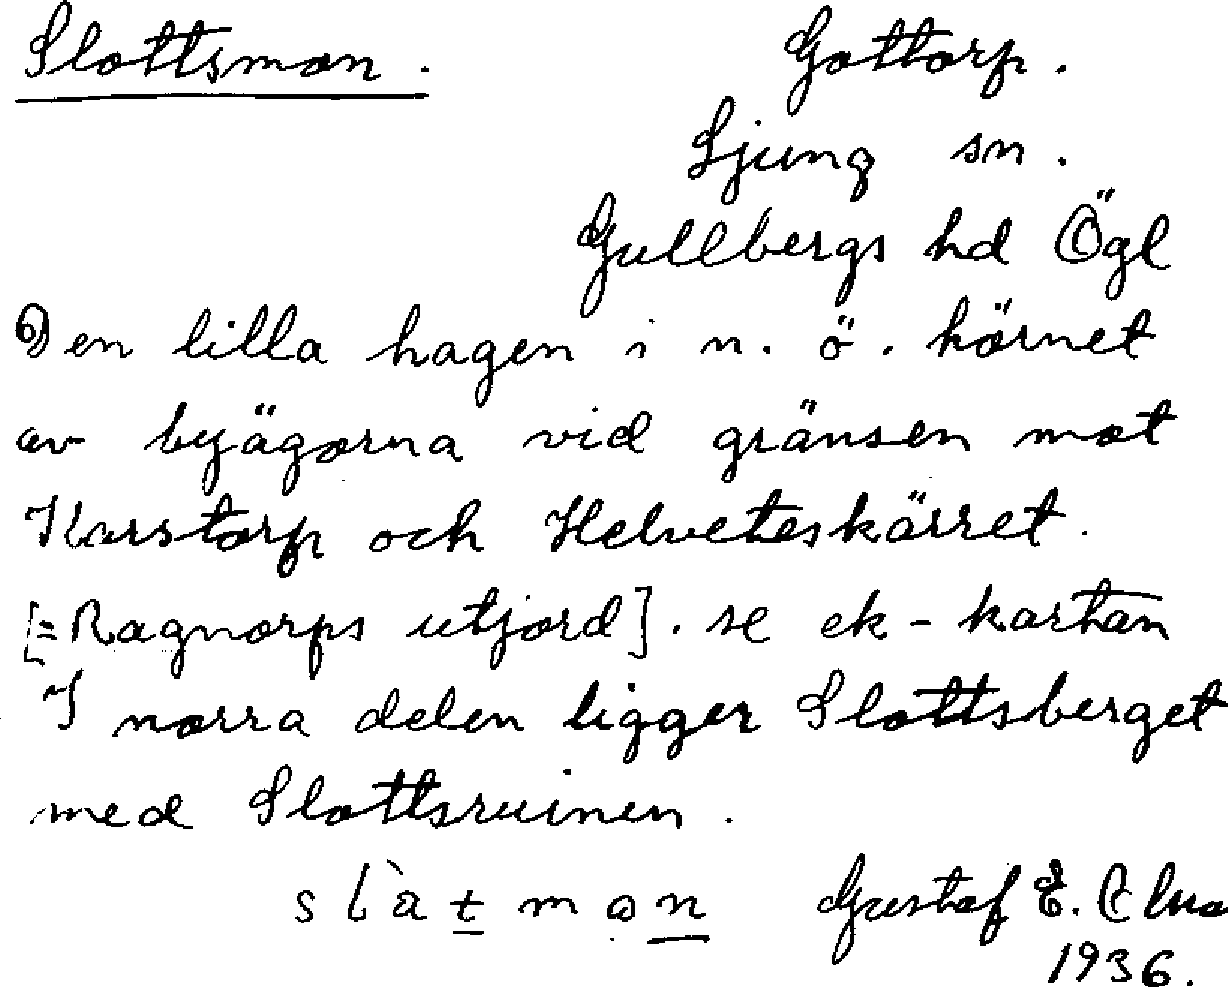 Slottsmon. Gottorp.
Ljung sn.
Gullbergs hd Ögl
Den lilla hagen i n. ö. hörnet
av byägorna vid gränsen mot
Karstorp och Helveteskärret.
[=Ragnorps utjord]. se ek-kartan
I norra delen ligger Slottsberget
med Slottsruinen.
Gustaf E.
1936.